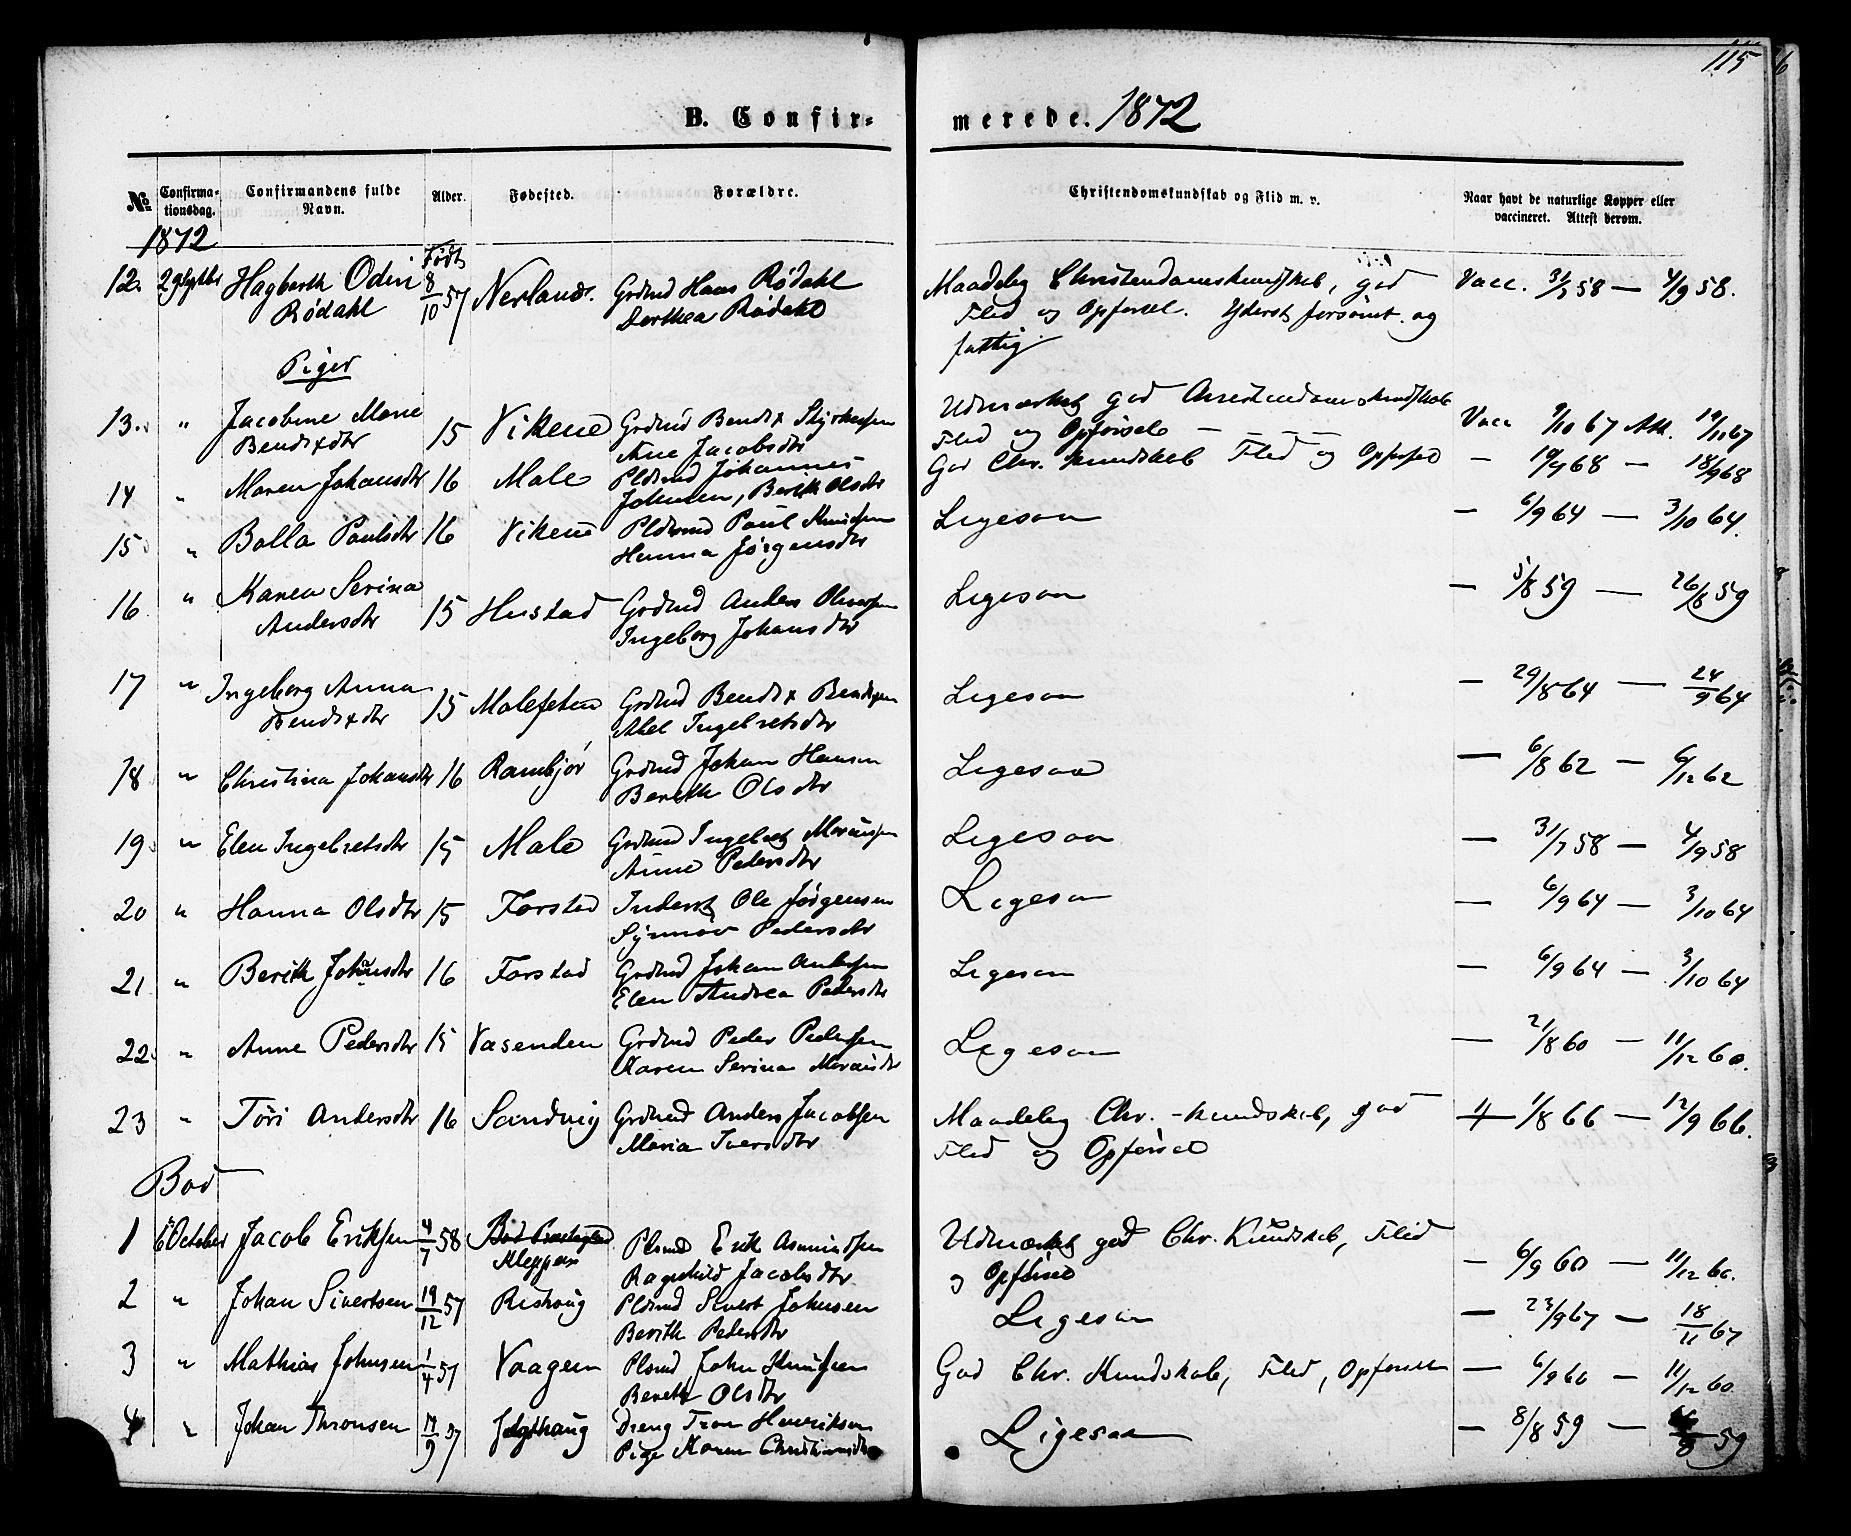 115
6
B. Confir-
merede. 1872
No
Confirma-
tionsdag.
Confirmandens fulde
Navn.
Alder.
Fødested.
Forældre.
Christendomskundskab og Flid m. v.
Naar havt de naturlige Kopper eller
vaccineret. Attest derom.
1872
Født
12. 29 Sptbr Hagbarth Odin 8/10 57 Nerland. Grdmd Hans Rødahl Maadelig Christendomskundskab, god Vacc. 31/7 58 — 4/9 58.
Rødahl Dorthea Rødahl Flid og Opførsel. Yderst forsømt og
fattig.
Piger
13. " Jacobine Marie 15 Vikene Grdmd Bendix Styrkersen Udmærket god Christendomskundskab Vacc 9/10 67 Att. 19/11 67
Bendixdtr Ane Jacobsdtr Flid og Opførsel — — — —
14 " Maren Johansdtr 16 Male Pldsmd Johannes God Chr. kundskab Flid og Opførsel — 19/9 68 — 18/9 68
Johnsen, Berith Olsdtr
15 " Bolla Paulsdtr 16 Vikene Pldsmd Paul Knudsen Ligesaa — 6/9 64 — 3/10 64.
Hanna Jørgensdtr
16 " Karen Serina 15 Hustad Grdmd Anders Oliversen Ligesaa — 5/8 59 — 26/8 59
Andersdtr Ingeborg Johansdtr
17 " Ingeborg Anna 15 Malefeten Grdmd Bendix Bendixsen Ligesaa — 29/8 64 — 24/9 64
Bendixdtr Abel Ingebretsdtr
18 " Christina Johansdtr 16 Rambjør Grdmd Johan Hansen Ligesaa — 6/8 62 — 6/12 62
Berith Olsdtr
19 " Elen Ingebretsdtr 15 Male Grdmd Ingebret Monsen Ligesaa — 31/7 58 — 4/9 58
Anne Pedersdtr
20 " Hanna Olsdtr 15 Farstad Inderst Ole Jørgensen Ligesaa — 6/9 64 — 3/10 64
Synnøv Pedersdtr
21 " Berith Johansdtr 16 Farstad Grdmd Johan Andersen Ligesaa — 6/9 64 — 3/10 64
Elen Andrea Pedersdtr
22 " Anne Pedersdtr 15 Vasenden Grdmd Peder Pedersen Ligesaa — 21/8 60 — 11/12 60.
Karen Serina
23 " Tøri Andersdtr 16 Sandvig Grdmd Anders Jacobsen Maadelig Chr. -kundskab, god — 1/8 66 — 12/9 66.
Maria Iversdtr Flid og Opførsel
Bod
1 6 October Jacob Eriksen 4/7 58 Bod Præstegaard Plsmd Erik Asmundsen Udmærket god Chr. Kundskab, Flid — 6/9 60 — 11/12 60.
Kleppen Ragnhild Jacobsdtr og Opførsel
2 " Johan Sivertsen 19/12 57 Rishaug Pldsmd Sivert Johnsen Ligesaa — 23/9 67 — 18/11 67
Berith Pedersdtr
3 " Mathias Johnsen 1/4 57 Vaagen Plsmd John Knudsen God Chr. Kundskab, Flid, Opførsel — 6/9 60 — 11/12 60
Bereth Olsdtr
4 " Johan Thronsen 19/9 57 Jægthaug Dreng Tron Henriksen Ligesaa — 8/8 59 — 59
Pige Karen Christiansdtr